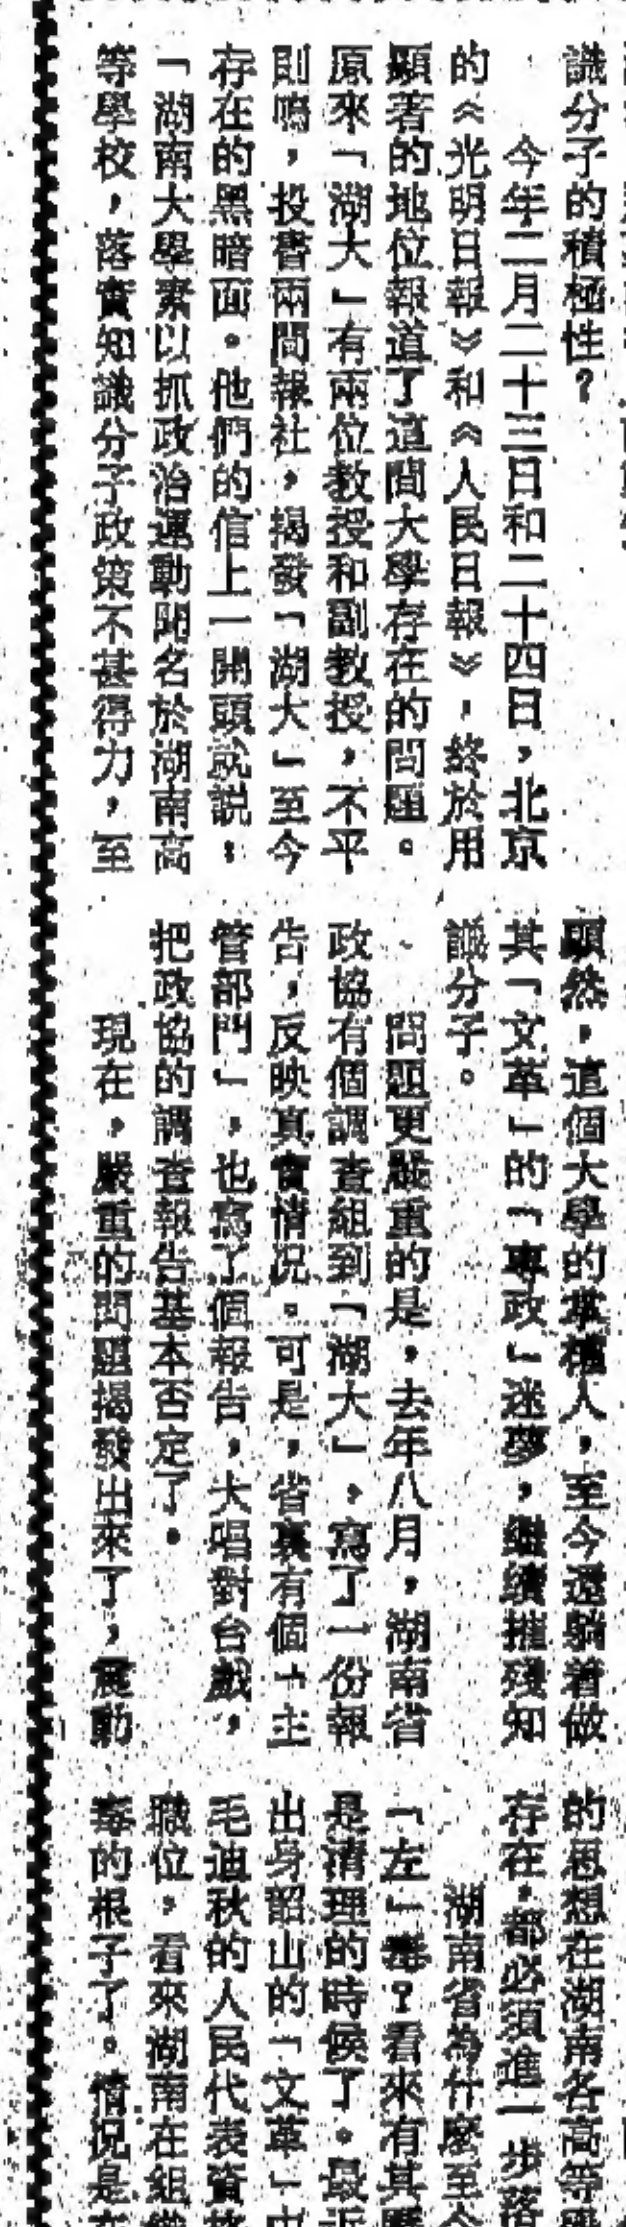 識分子的積極性？
今年二月二十三日和二十四日，北京
的《光明日報》和《人民日報》，終於用
顯著的地位報道了這間大學存在的問題。
原來「湖大」有兩位教授和副教授，不平
則鳴，投書兩間報社，揭發「湖大」至今
存在的黑暗面。他們的信上一開頭就說：
「湖南大學素以抓政治運動聞名於湖南高
等學校，落實知識分子政策不甚得力，至
顯然，這個大學的掌權人，至今還躺着做
其「文革」的「專政」迷夢，繼續摧殘知
識分子。
問題更嚴重的是，去年八月，湖南省
政協有個調查組到「湖大」，寫了一份報
告，反映真實情况。可是，省裏有個「主
管部門」，也寫了個報告，大唱對台戲，
把政協的調查報告基本否定了。
現在，嚴重的問題揭發出來了，震動
的思想在湖南各高等
存在，都必須進一步落
湖南省為什麼至今
「左」毒？看來有其
是清理的時候了。最近
出身韶山的「文革」
毛迪秋的人民代表資格
職位，看來湖南在組織
毒的根子了。情况是